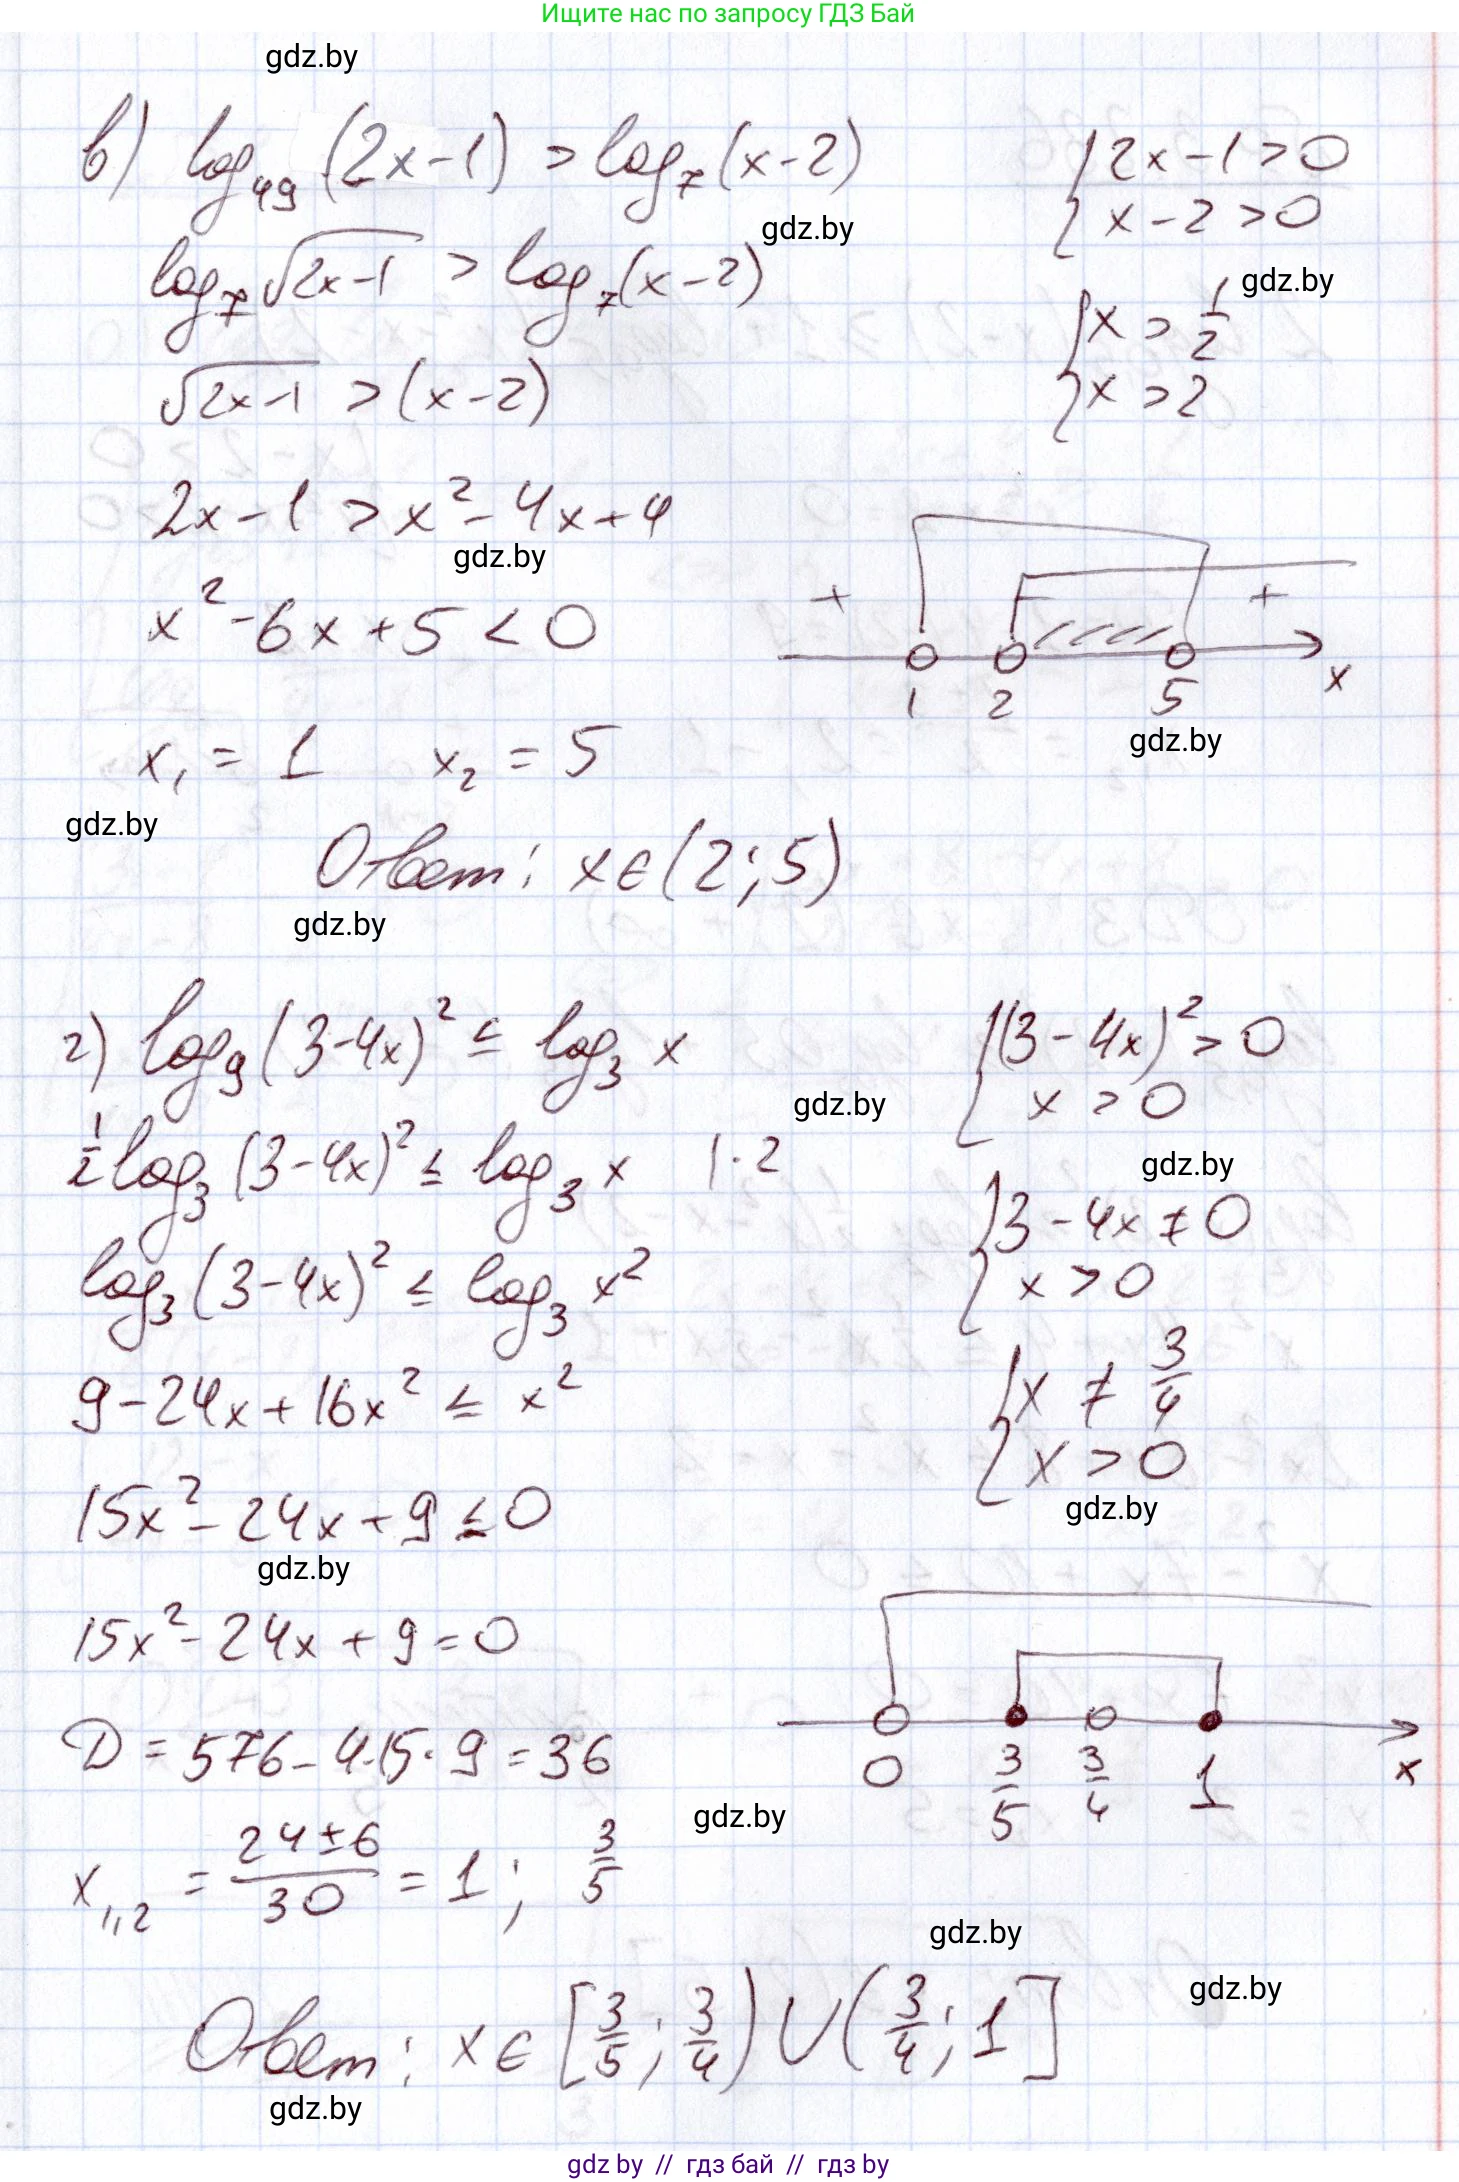 Ищите нас по запросу ГДЗ Бай
gdz.by
в) log₄₉ (2x-1) > log₇ (x-2)
{ 2x-1>0
x-2>0
gdz.by
log₇ √(2x-1) > log₇ (x-2)
gdz.by
{ x > 1/2
x > 2
√(2x-1) > (x-2)
2x-1 > x²-4x+4
gdz.by
x²-6x+5 < 0
+ - +
1 2 5 x
gdz.by
x₁ = 1 x₂ = 5
gdz.by
Ответ: x∈(2;5)
gdz.by
г) log₉ (3-4x)² ≤ log₃ x
{ (3-4x)² > 0
x > 0
gdz.by
1/2 log₃ (3-4x)² ≤ log₃ x |·2
gdz.by
{ 3-4x ≠ 0
x > 0
log₃ (3-4x)² ≤ log₃ x²
{ x ≠ 3/4
x > 0
9-24x+16x² ≤ x²
gdz.by
15x²-24x+9 ≤ 0
gdz.by
15x²-24x+9=0
D = 576-4·15·9 = 36
0 3/5 3/4 1 x
gdz.by
x₁,₂ = (24±6)/30 = 1; 3/5
gdz.by
gdz.by
Ответ: x∈[3/5; 3/4) ∪ (3/4; 1]
gdz.by
gdz by // гдз бай // гдз by